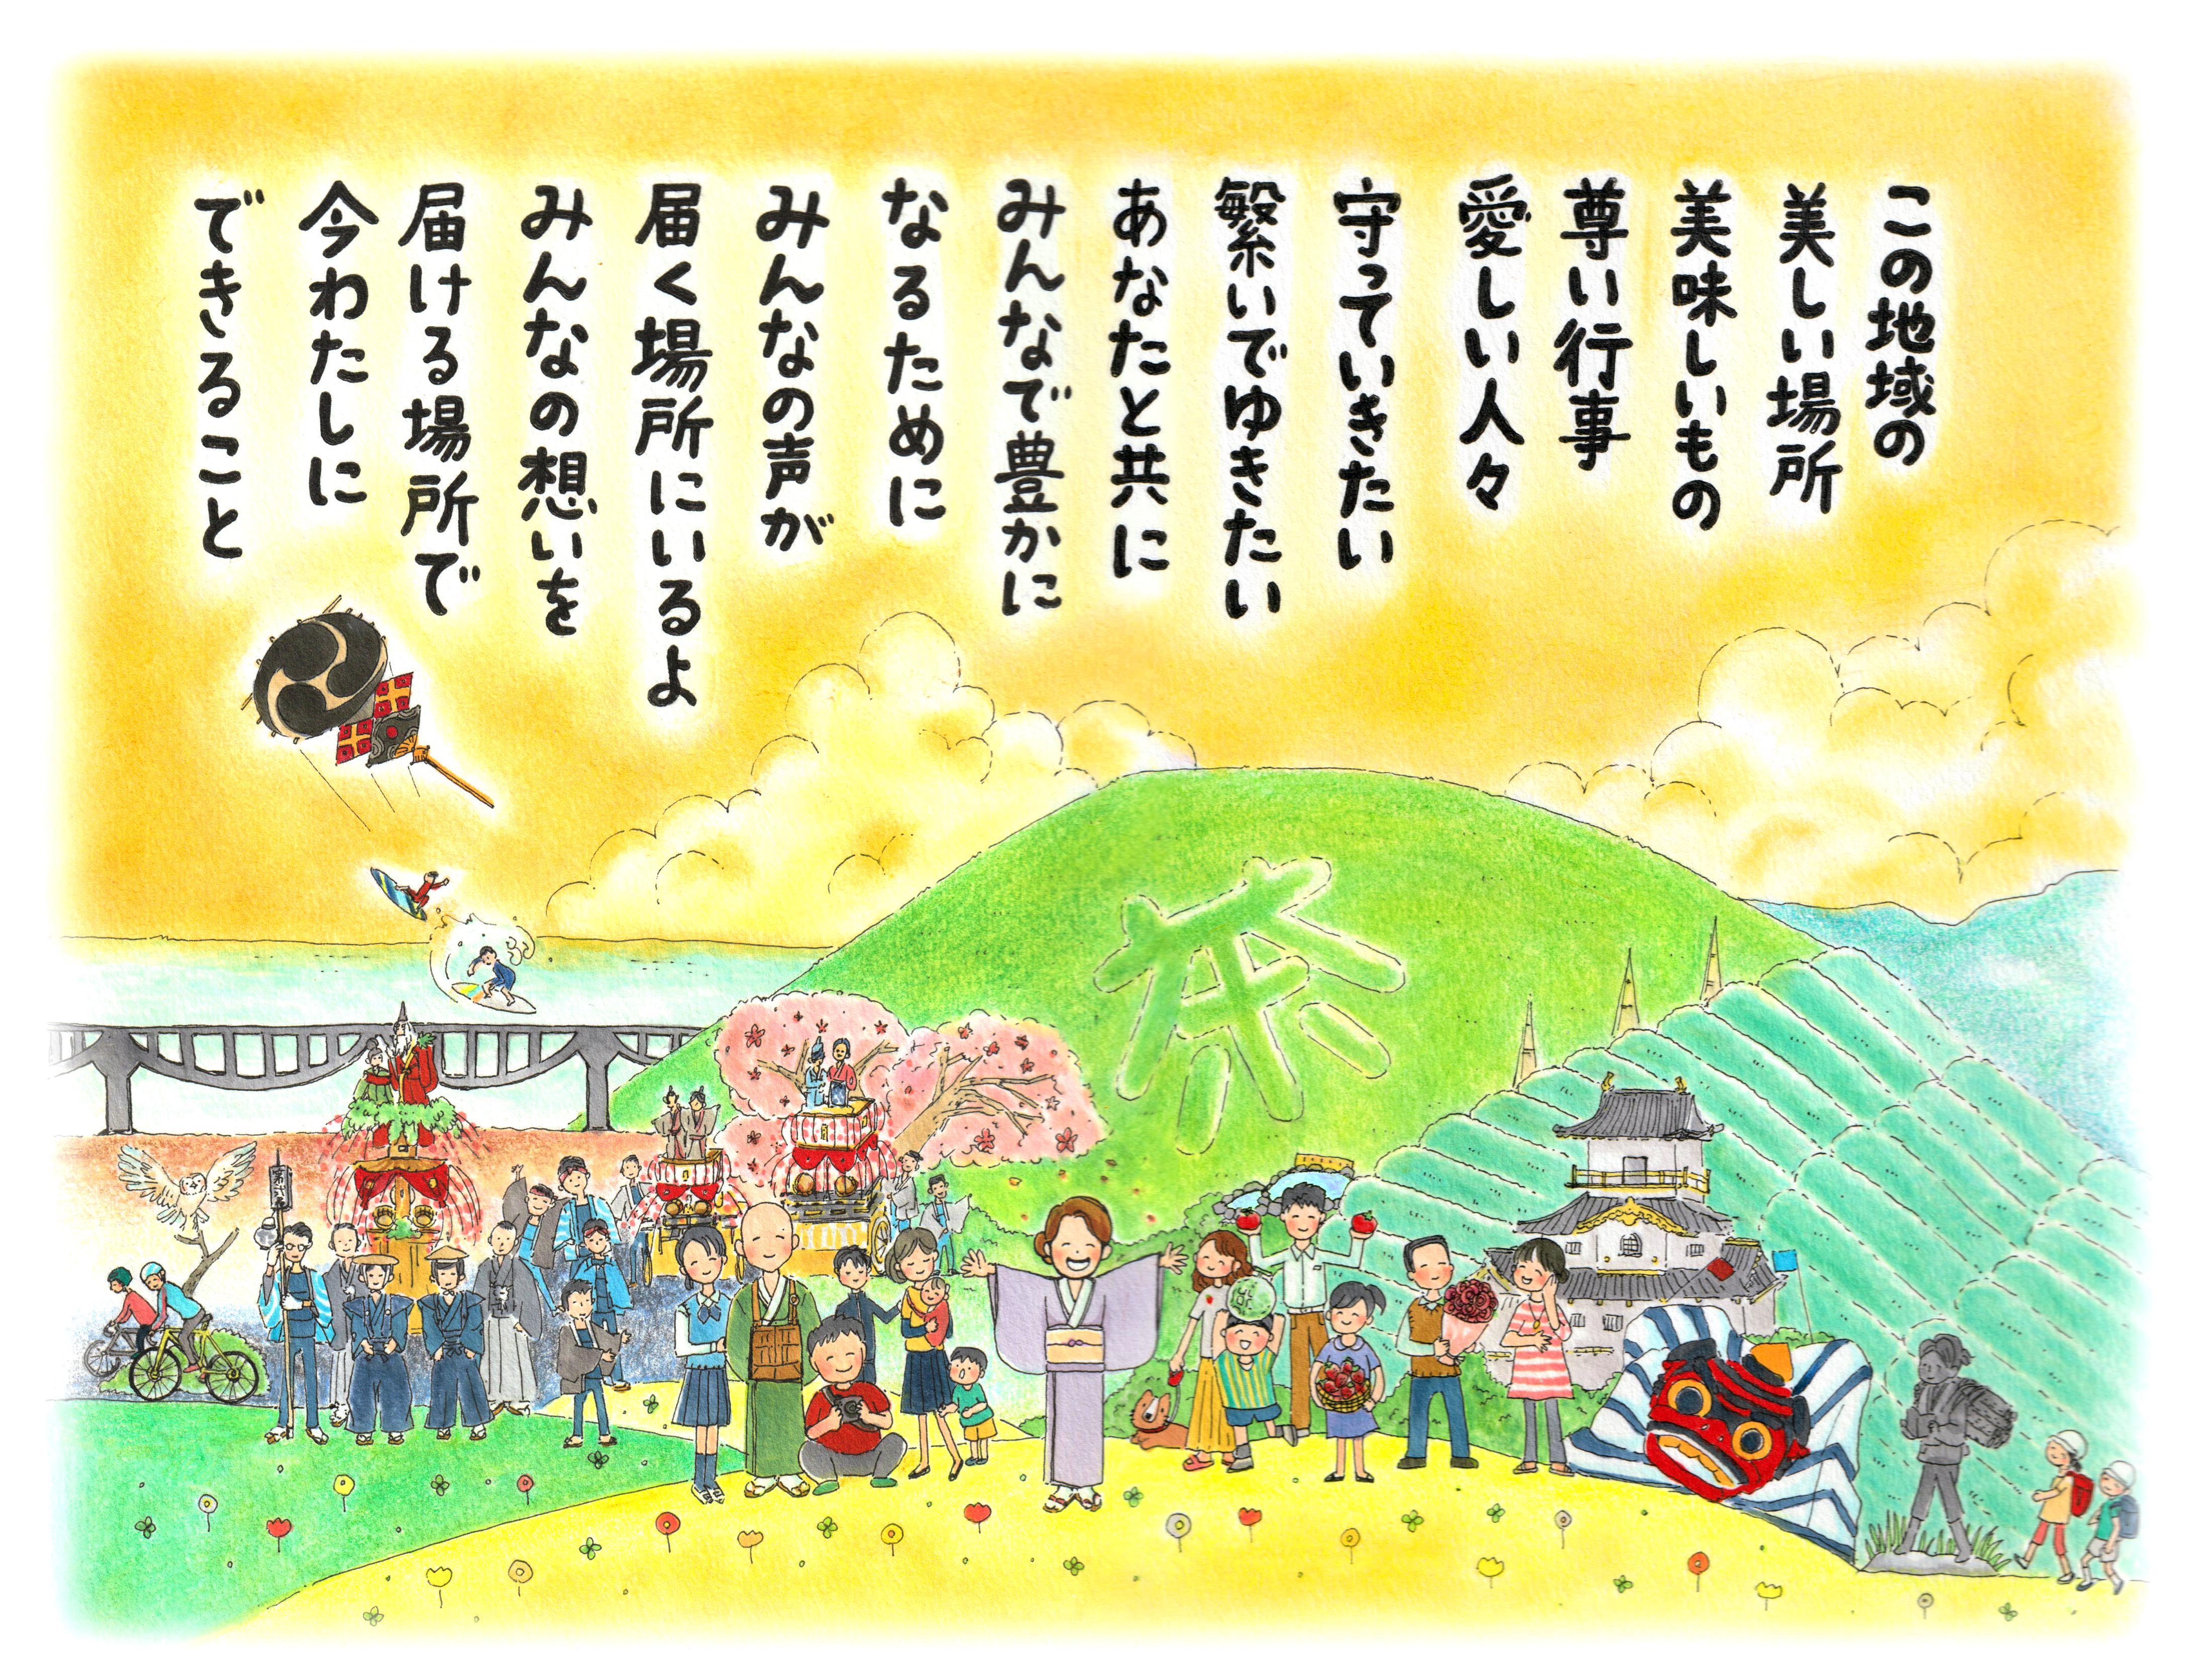 この地域の
美しい場所
美味しいもの
尊い行事
愛しい人々
守っていきたい
繋いでゆきたい
あなたと共に
みんなで豊かに
なるために
みんなの声が
届く場所にいるよ
みんなの想いを
届ける場所で
今わたしに
できること
茶